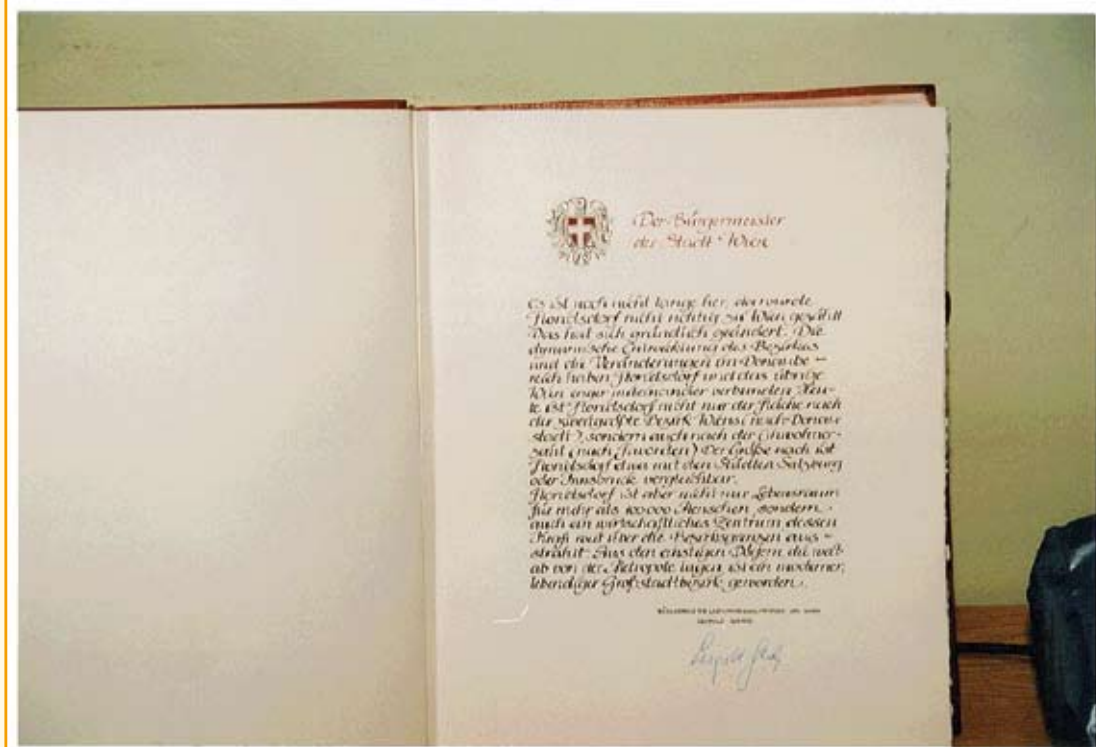 Der Bürgermeister
der Stadt Wien
Es ist noch nicht lange her, da wurde
Floridsdorf nicht richtig zu Wien gezählt
Das hat sich gründlich geändert. Die
dynamische Entwicklung des Bezirkes
und die Veränderungen im Donaube-
reich haben Floridsdorf und das übrige
Wien enger miteinander verbunden. Heu-
te ist Floridsdorf nicht nur der Fläche nach
der zweitgrößte Bezirk Wiens (nach Donau-
stadt), sondern auch nach der Einwohner-
zahl (nach Favoriten) Der Größe nach ist
Floridsdorf etwa mit den Städten Salzburg
oder Innsbruck vergleichbar.
Floridsdorf ist aber nicht nur Lebensraum
für mehr als 100000 Menschen, sondern
auch ein wirtschaftliches Zentrum dessen
Kraft weit über die Bezirksgrenzen aus-
strahlt. Aus den einstigen Dörfern, die weit
ab von der Metropole lagen, ist ein moderner,
lebendiger Großstadtbezirk geworden.
BÜRGERMEISTER UND LANDESHAUPTMANN VON WIEN
LEOPOLD GRATZ
Leopold Gratz